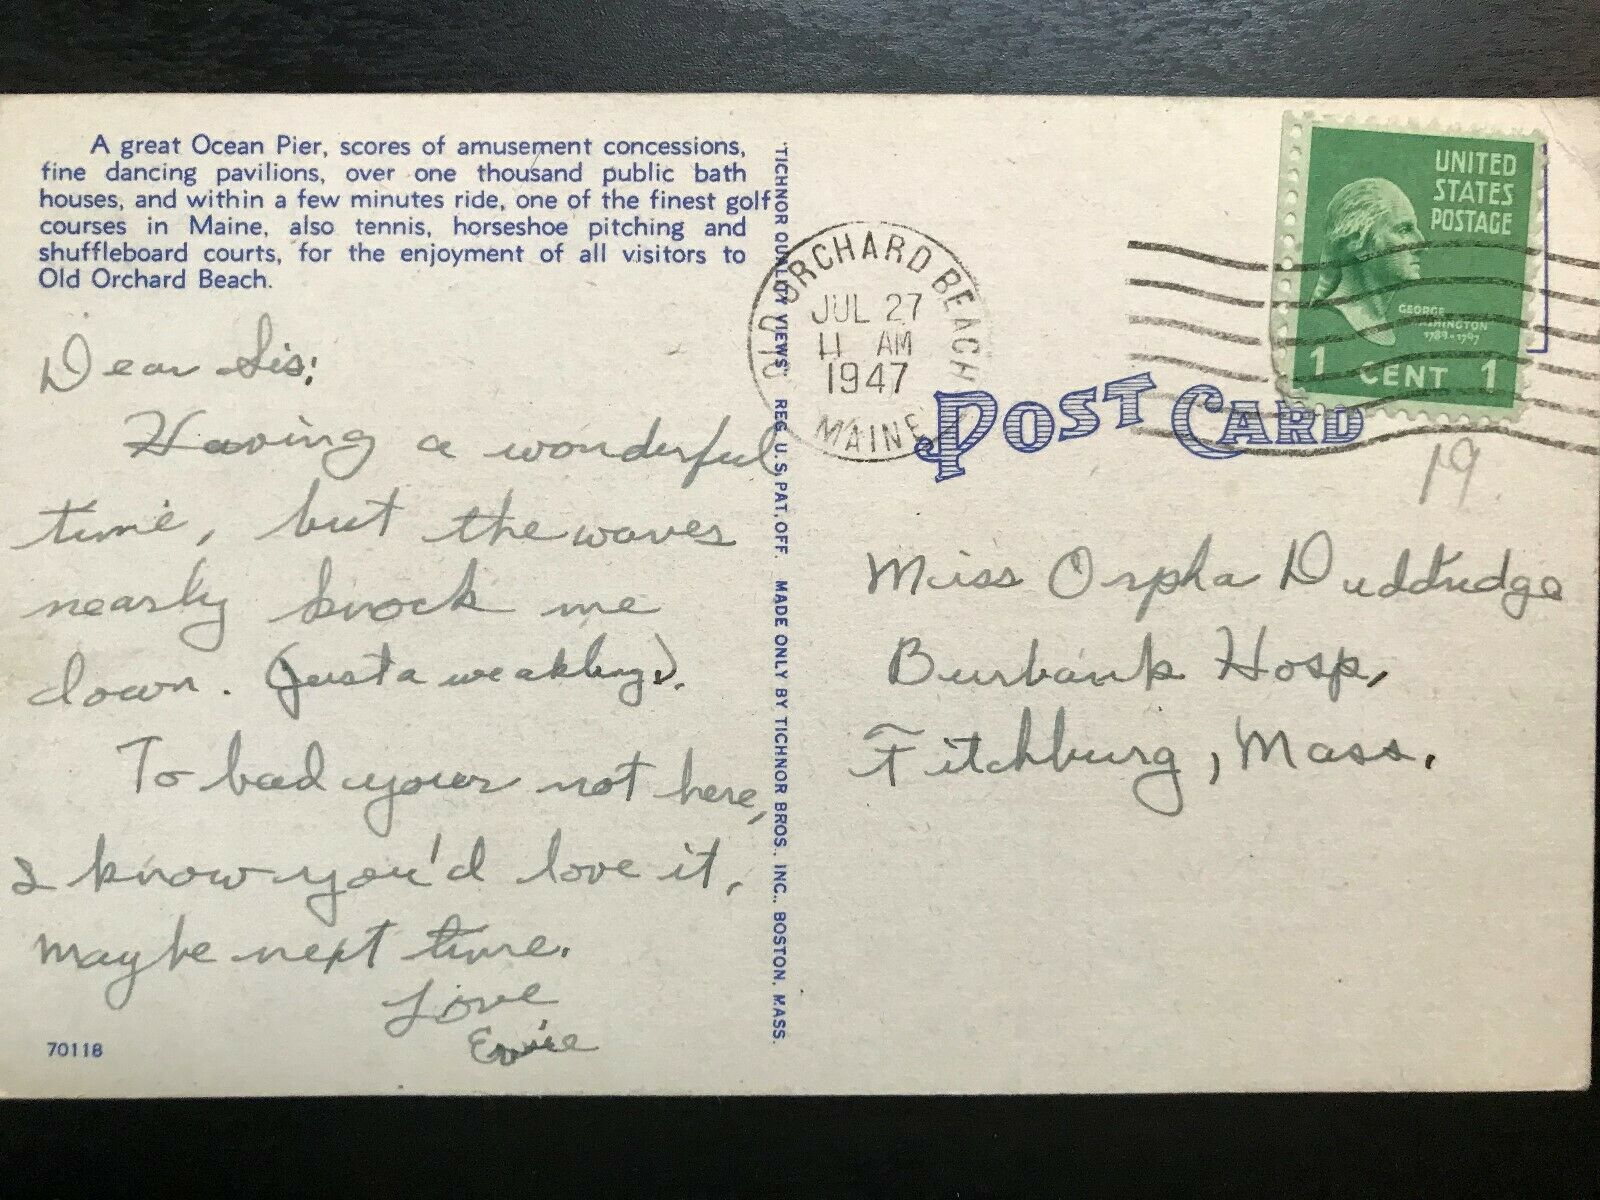 A great Ocean Pier, scores of amusement concessions,
fine dancing pavilions, over one thousand public bath
houses, and within a few minutes ride, one of the finest golf
courses in Maine, also tennis, horseshoe pitching and
shuffleboard courts, for the enjoyment of all visitors to
Old Orchard Beach.
Dear Sis:
Having a wonderful
time, but the waves
nearly knock me
down. (just a weakling).
To bad your not here,
I know you'd love it,
maybe next time.
Love
70118
"TICHNOR QUALITY VIEWS" REG. U.S. PAT. OFF. MADE ONLY BY TICHNOR BROS., INC., BOSTON, MASS.
OLD ORCHARD BEACH
JUL 27
11 AM
1947
MAINE
POST CARD
UNITED
STATES
POSTAGE
GEORGE
WASHINGTON
1789-1797
1 CENT 1
19.
Miss Orpha Duddridge
Burbank Hosp,
Fitchburg, Mass.